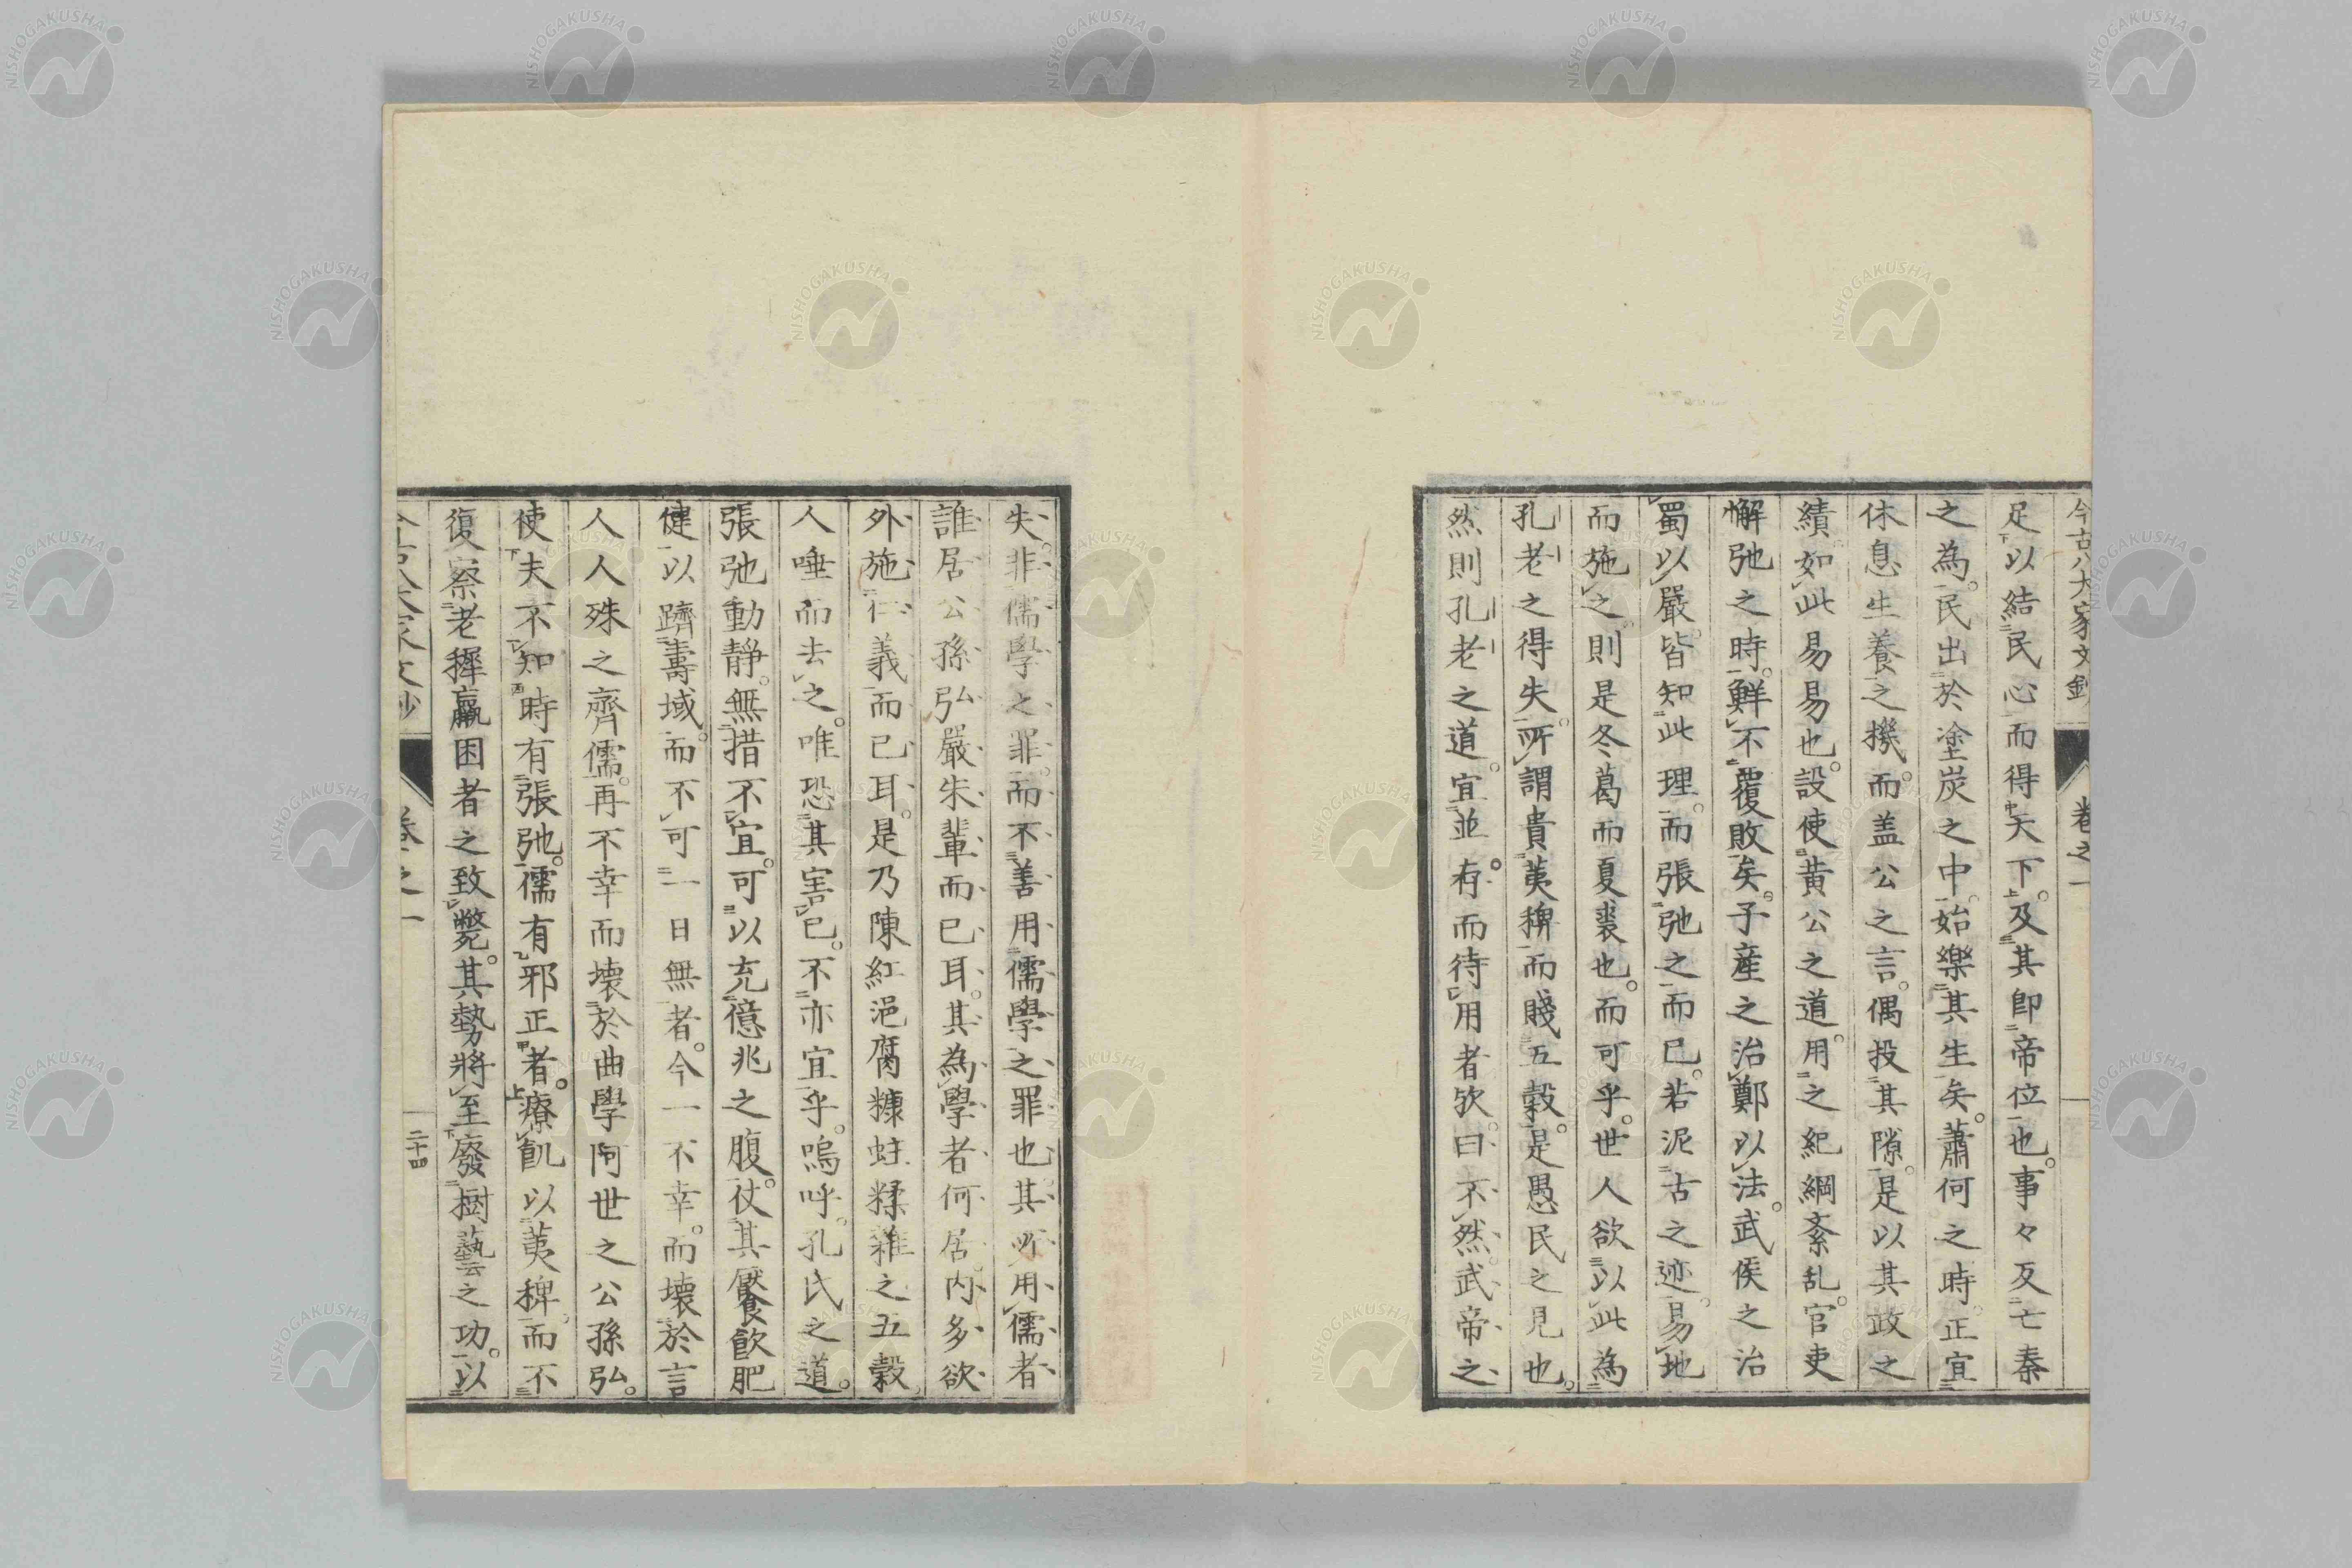 今古八大家文鈔 卷之一
足以結民心而得天下。及其即帝位也。事々反亡秦
之為。民出於塗炭之中。始樂其生矣。蕭何之時。正宜
休息生養之機。而盖公之言。偶投其隙。是以其政之
績如此易易也。設使黃公之道。用之紀綱紊乱。官吏
懈弛之時。鮮不覆敗矣。子産之治鄭以法。武侯之治
蜀以嚴。皆知此理。而張弛之而已。若泥古之迹。易地
而施之。則是冬葛而夏裘也。而可乎。世人欲以此為
孔老之得失。所謂貴荑稗而賤五穀。是愚民之見也。
然則孔老之道。宜並存而待用者欤。曰不然。武帝之
失。非儒學之罪。而不善用儒學之罪也。其所用儒者
誰居。公孫弘嚴朱輩而已耳。其為學者何居。内多欲
外施仁義而已耳。是乃陳紅浥腐糠蛀糅雜之五穀
人唾而去之。唯恐其害已。不亦宜乎。嗚呼。孔氏之道。
張弛動靜。無措不宜。可以充億兆之腹。仗其饜飲肥
健以躋壽域。而不可一日無者。今一不幸。而壞於言
人人殊之齊儒。再不幸而壞於曲學阿世之公孫弘。
使夫不知時有張弛。儒有邪正者。療飢以荑稗。而不
復察老穉羸困者之致斃。其勢將至廢樹藝之功。以
今古八大家文鈔 卷之一 二十四
NISHOGAKUSHA